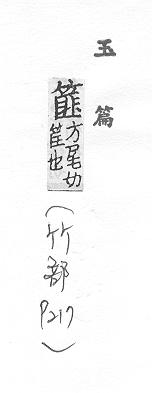 玉篇
篚方尾切筐也
(竹部P217)